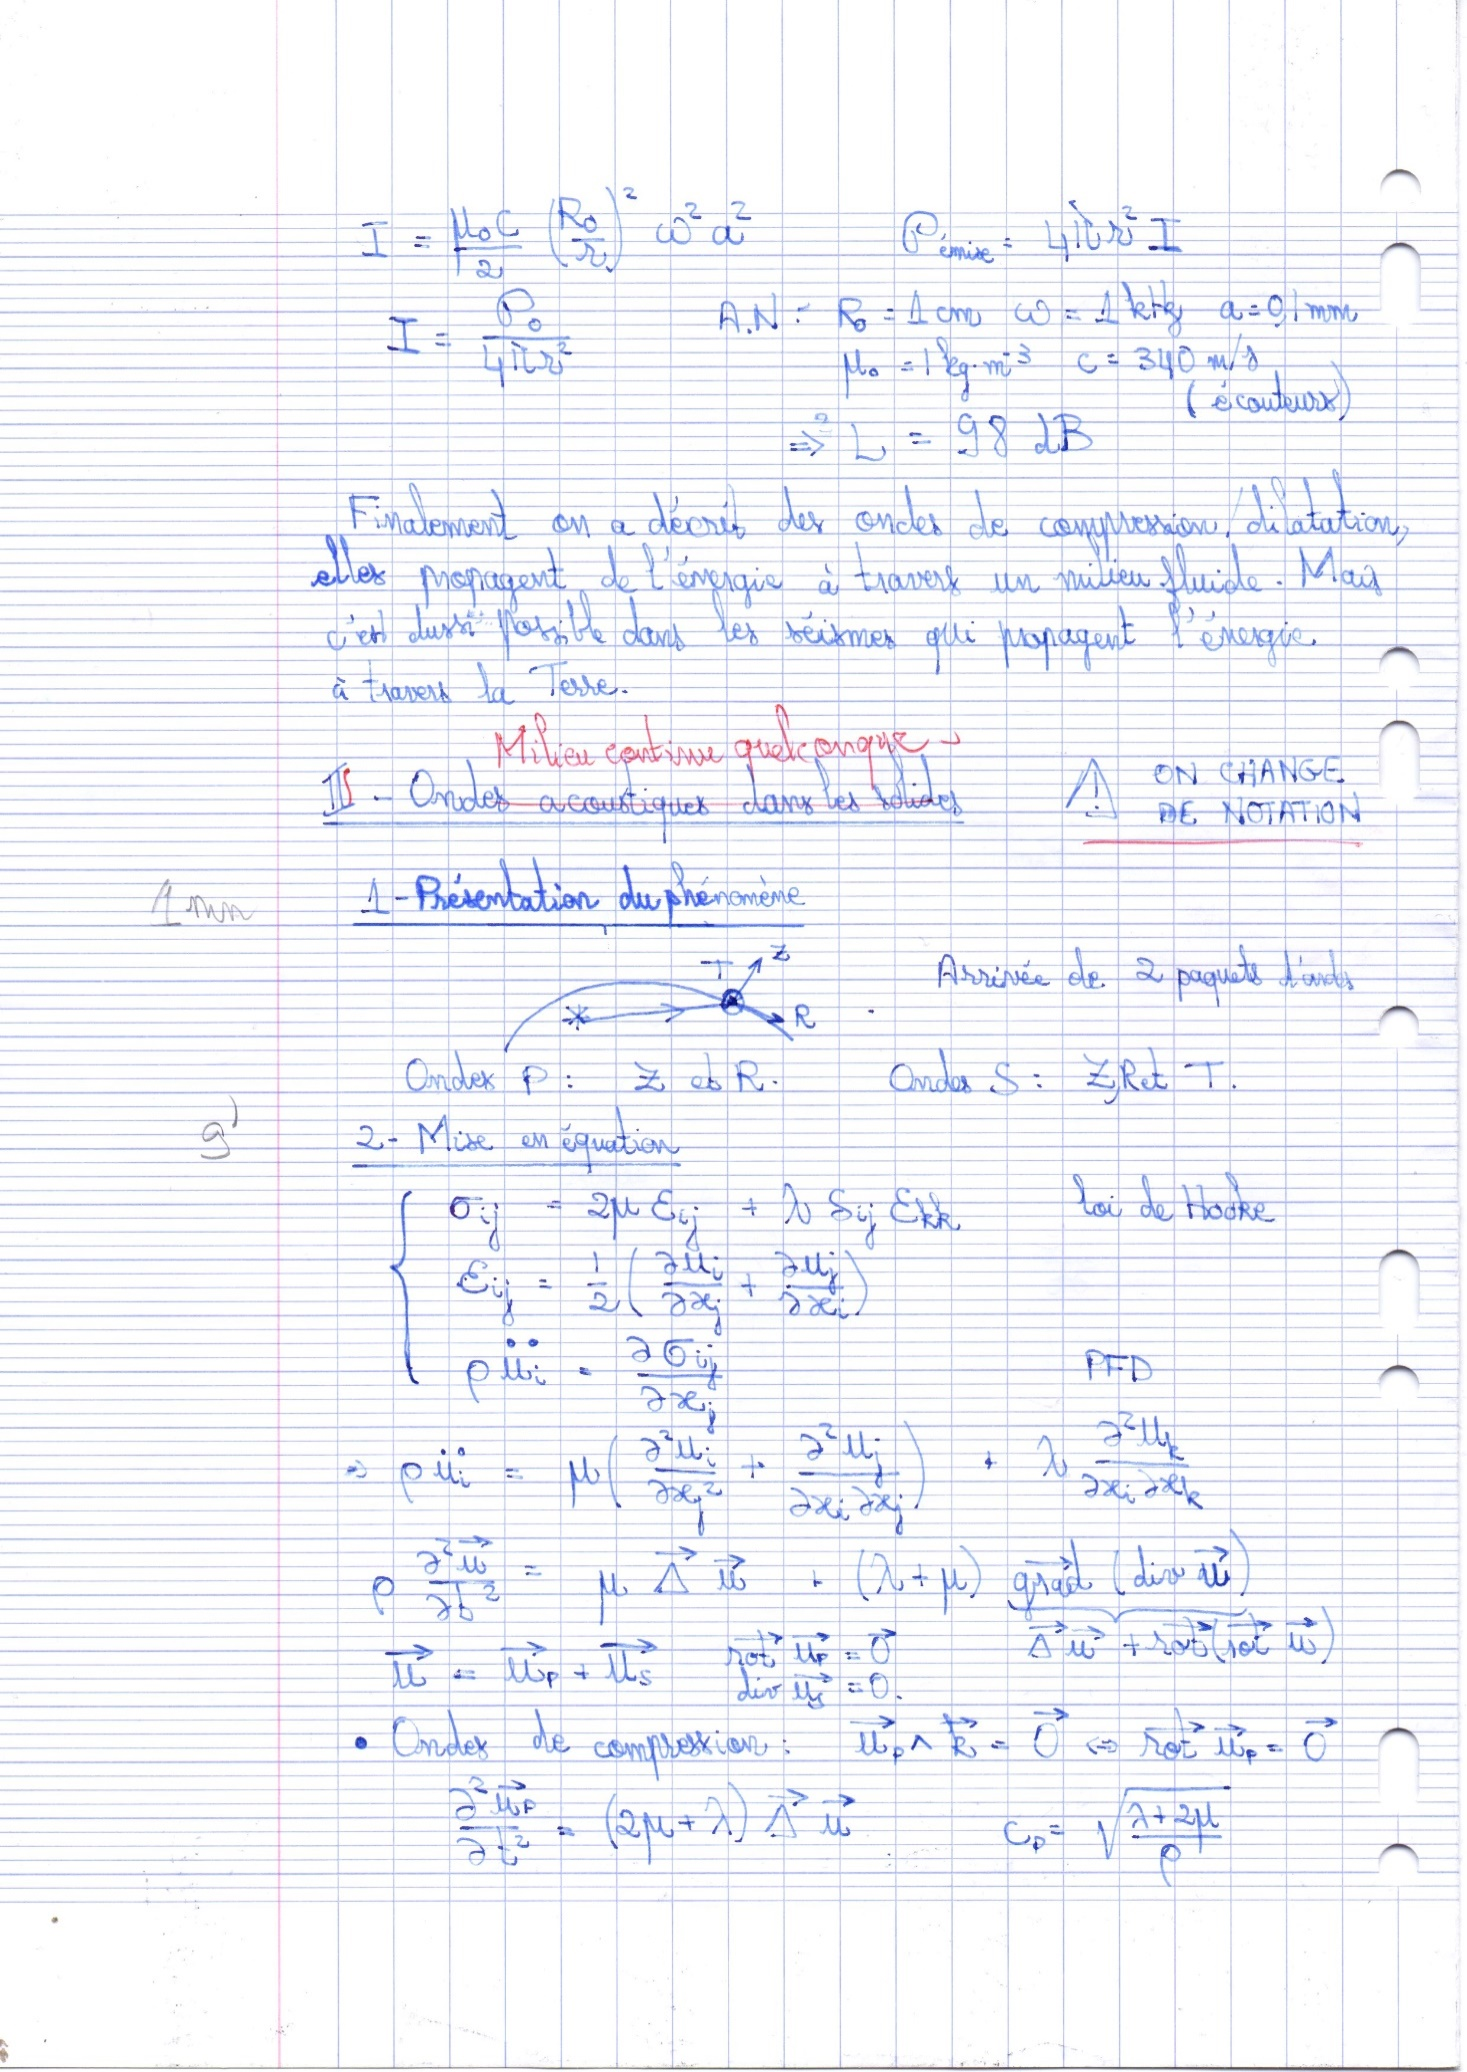 I = μ₀c/2 (R₀/r)² ω² a²   𝒫émise = 4πr² I
I = 𝒫₀/4πr²   A.N : R₀ = 1 cm ω = 1 kHz a = 0,1 mm
μ₀ = 1 kg.m⁻³ c = 340 m/s
(écouteurs)
⇒² L = 98 dB
Finalement on a décrit des ondes de compression/dilatation,
elles propagent de l'énergie à travers un milieu fluide. Mais
c'est aussi possible dans les séismes qui propagent l'énergie
à travers la Terre.
Milieu continu quelconque
II - Ondes acoustiques dans les solides   ⚠ ON CHANGE
DE NOTATION
1 mn 1 - Présentation du phénomène
T Z R   Arrivée de 2 paquets d'onds
Ondes P : Z et R.   Ondes S : Z, R et T.
9' 2 - Mise en équation
σij = 2μ εij + λ δij εkk   loi de Hooke
εij = 1/2 (∂ui/∂xj + ∂uj/∂xi)
ρ üi = ∂σij/∂xj   PFD
⇒ ρ üi = μ (∂²ui/∂xj² + ∂²uj/∂xi∂xj) + λ ∂²uk/∂xi∂xk
ρ ∂²u⃗/∂t² = μ Δ⃗ u⃗ + (λ+μ) grad⃗ (div u⃗)
Δ⃗ u⃗ + rot⃗(rot⃗ u⃗)
u⃗ = u⃗P + u⃗S   rot⃗ u⃗P = 0⃗
div u⃗S = 0.
• Ondes de compression : u⃗P ∧ k⃗ = 0⃗ ⇔ rot⃗ u⃗P = 0⃗
∂²u⃗P/∂t² = (2μ+λ) Δ⃗ u⃗   cP = √((λ+2μ)/ρ)